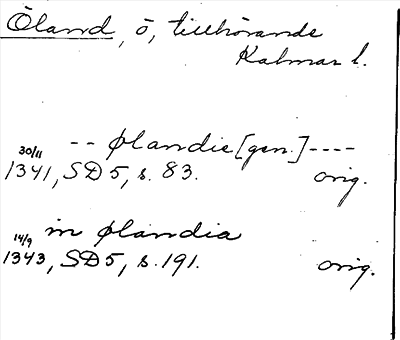 Öland, ö, tillhörande
Kalmar l.
-- ølandie [gen.] ----
30/11
1341, SD 5, s. 83. orig.
in ølandia
14/9
1343, SD 5, s. 191. orig.